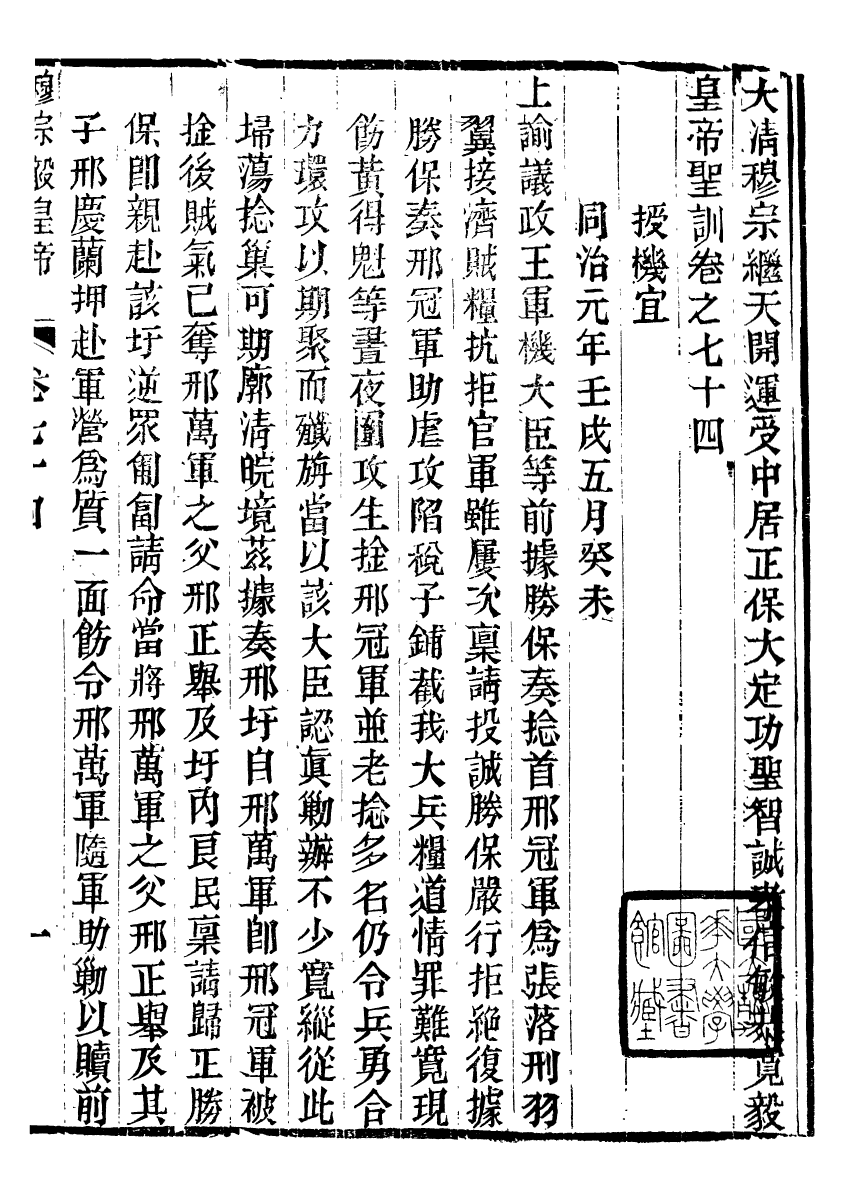 大清穆宗繼天開運受中居正保大定功聖智誠孝信敏恭寬毅
皇帝聖訓卷之七十四
授機宜
同治元年壬戌五月癸未
上諭議政王軍機大臣等前據勝保奏捻首邢冠軍爲張落刑羽
翼接濟賊糧抗拒官軍雖屢次稟請投誠勝保嚴行拒絶復據
勝保奏邢冠軍助虐攻陷稅子鋪截我大兵糧道情罪難寬現
飭黃得魁等晝夜圍攻生捦邢冠軍並老捻多名仍令兵勇合
力環攻以期聚而殲旃當以該大臣認眞勦辦不少寬縱從此
埽蕩捻巢可期廓清皖境茲據奏邢圩自邢萬軍卽邢冠軍被
捦後賊氣已奪邢萬軍之父邢正舉及圩內良民稟請歸正勝
保卽親赴該圩逆眾匍匐請命當將邢萬軍之父邢正舉及其
子邢慶蘭押赴軍營爲質一面飭令邢萬軍隨軍助勦以贖前
穆宗毅皇帝 卷七十四 一
國立 大學圖書館藏